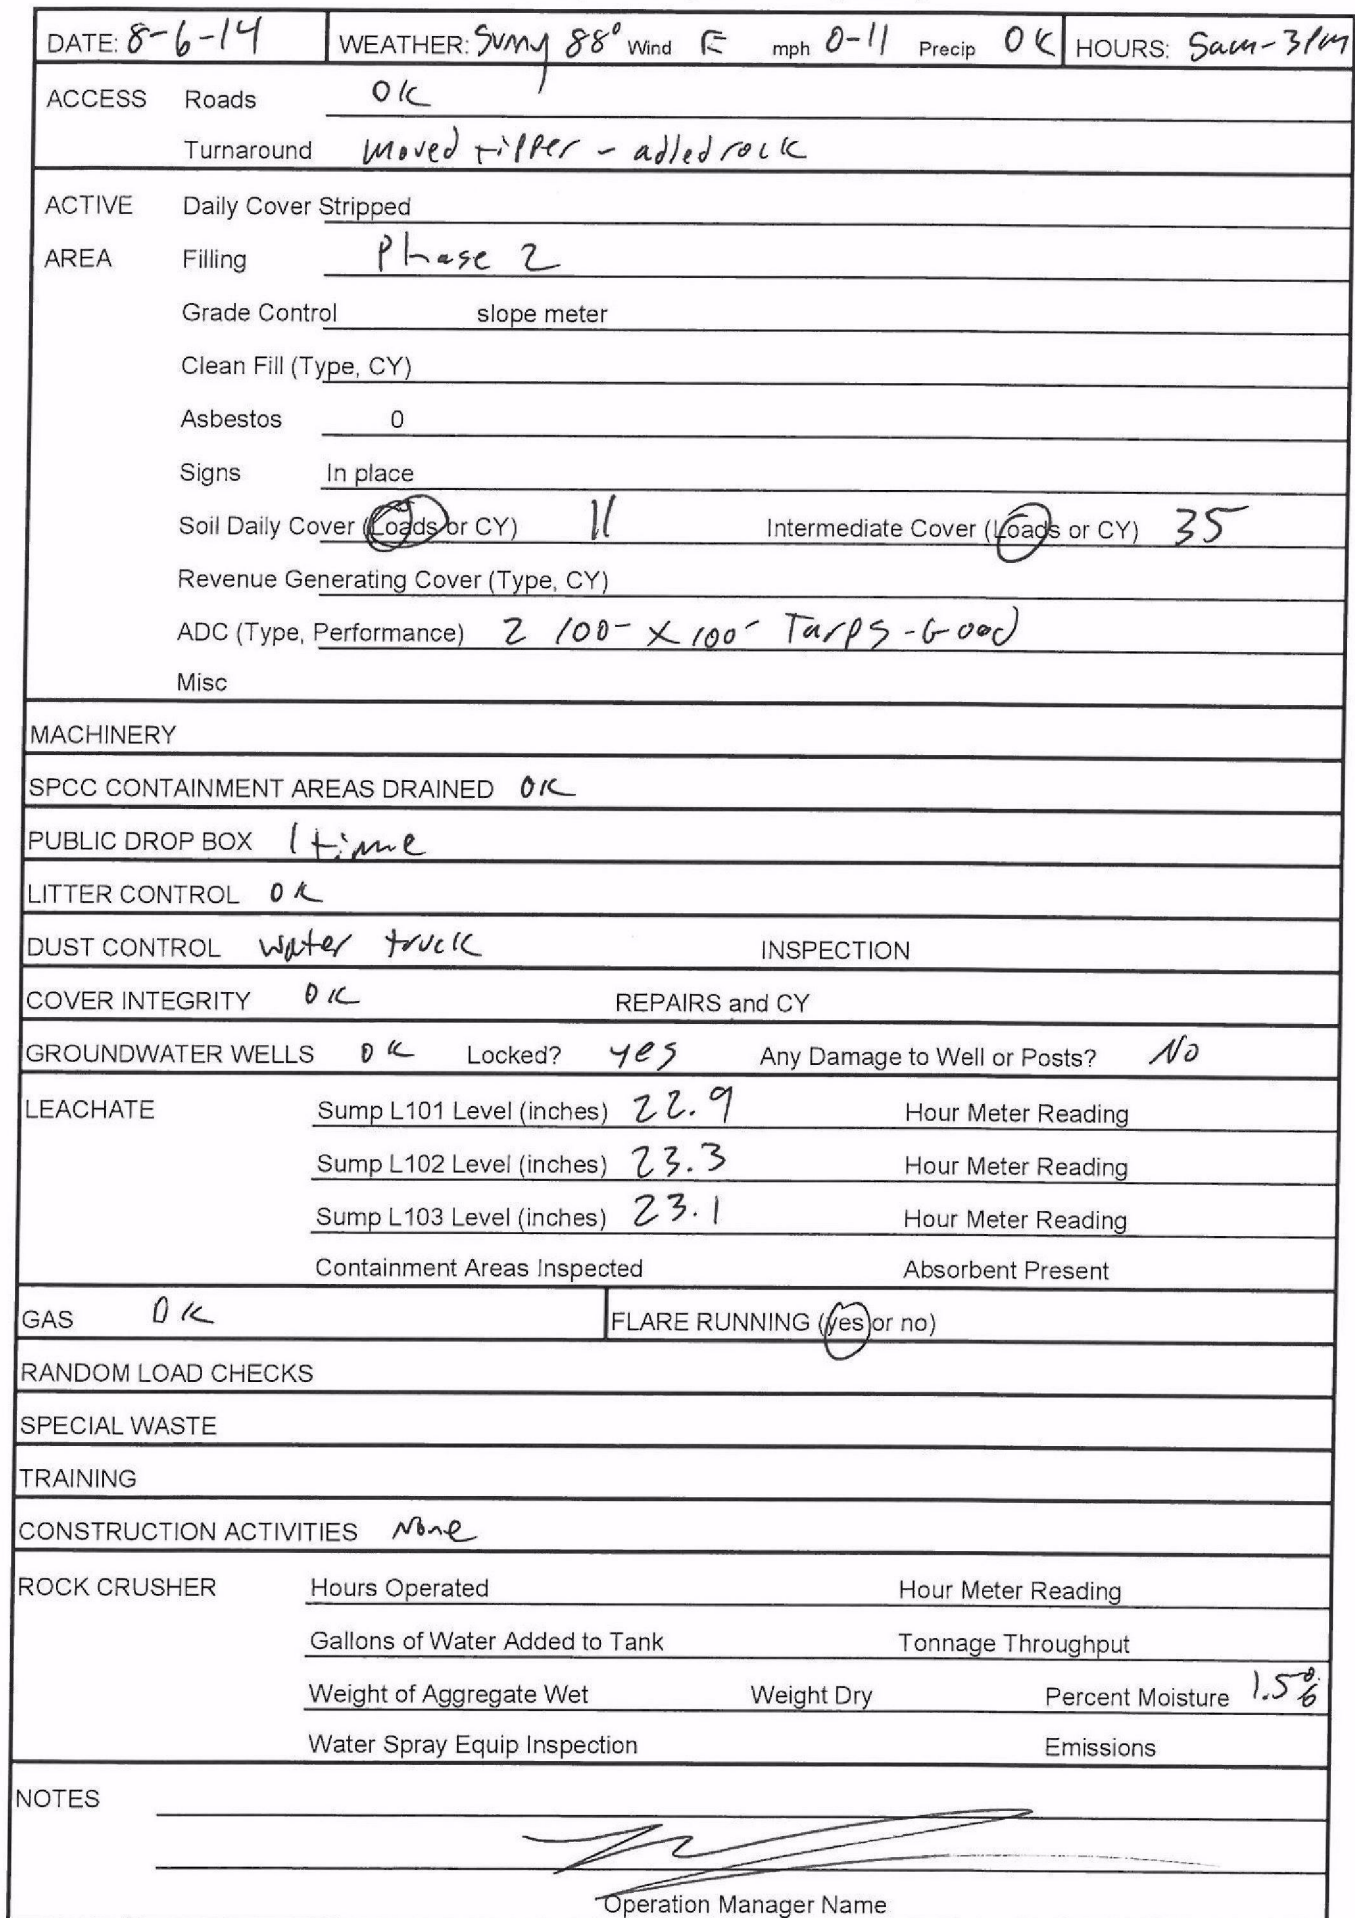 DATE: 8-6-14 WEATHER: Sunny 88° Wind E mph 0-11 Precip OK HOURS: 5am-3pm
ACCESS Roads OK
Turnaround moved tipper - added rock
ACTIVE Daily Cover Stripped
AREA Filling Phase 2
Grade Control slope meter
Clean Fill (Type, CY)
Asbestos 0
Signs In place
Soil Daily Cover (Loads or CY) 11 Intermediate Cover (Loads or CY) 35
Revenue Generating Cover (Type, CY)
ADC (Type, Performance) 2 100- X 100- Tarps - Good
Misc
MACHINERY
SPCC CONTAINMENT AREAS DRAINED OK
PUBLIC DROP BOX 1 time
LITTER CONTROL OK
DUST CONTROL water truck INSPECTION
COVER INTEGRITY OK REPAIRS and CY
GROUNDWATER WELLS OK Locked? yes Any Damage to Well or Posts? No
LEACHATE Sump L101 Level (inches) 22.9 Hour Meter Reading
Sump L102 Level (inches) 23.3 Hour Meter Reading
Sump L103 Level (inches) 23.1 Hour Meter Reading
Containment Areas Inspected Absorbent Present
GAS OK FLARE RUNNING (yes or no)
RANDOM LOAD CHECKS
SPECIAL WASTE
TRAINING
CONSTRUCTION ACTIVITIES None
ROCK CRUSHER Hours Operated Hour Meter Reading
Gallons of Water Added to Tank Tonnage Throughput
Weight of Aggregate Wet Weight Dry Percent Moisture 1.5%
Water Spray Equip Inspection Emissions
NOTES
Operation Manager Name